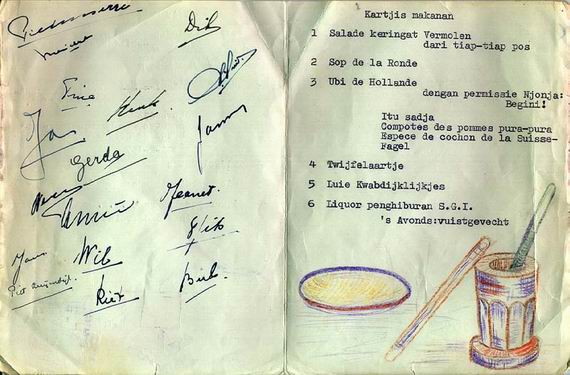 Dik
Trice
Henk
Jan
Gerda
Jeanet
Wib
Flik
Riet
Bieb.
Kartjis makanan
1 Salade keringat Vermolen
dari tiap-tiap pos
2 Sop de la Ronde
3 Ubi de Hollande
dengan permissie Njonja:
Begini!
Itu sadja
Compotes des pommes pura-pura
Espece de cochon de la Suisse-
Fagel
4 Twijfelaartje
5 Luie Kwabdijklijkjes
6 Liquor penghiburan S.G.I.
's Avonds:vuistgevecht